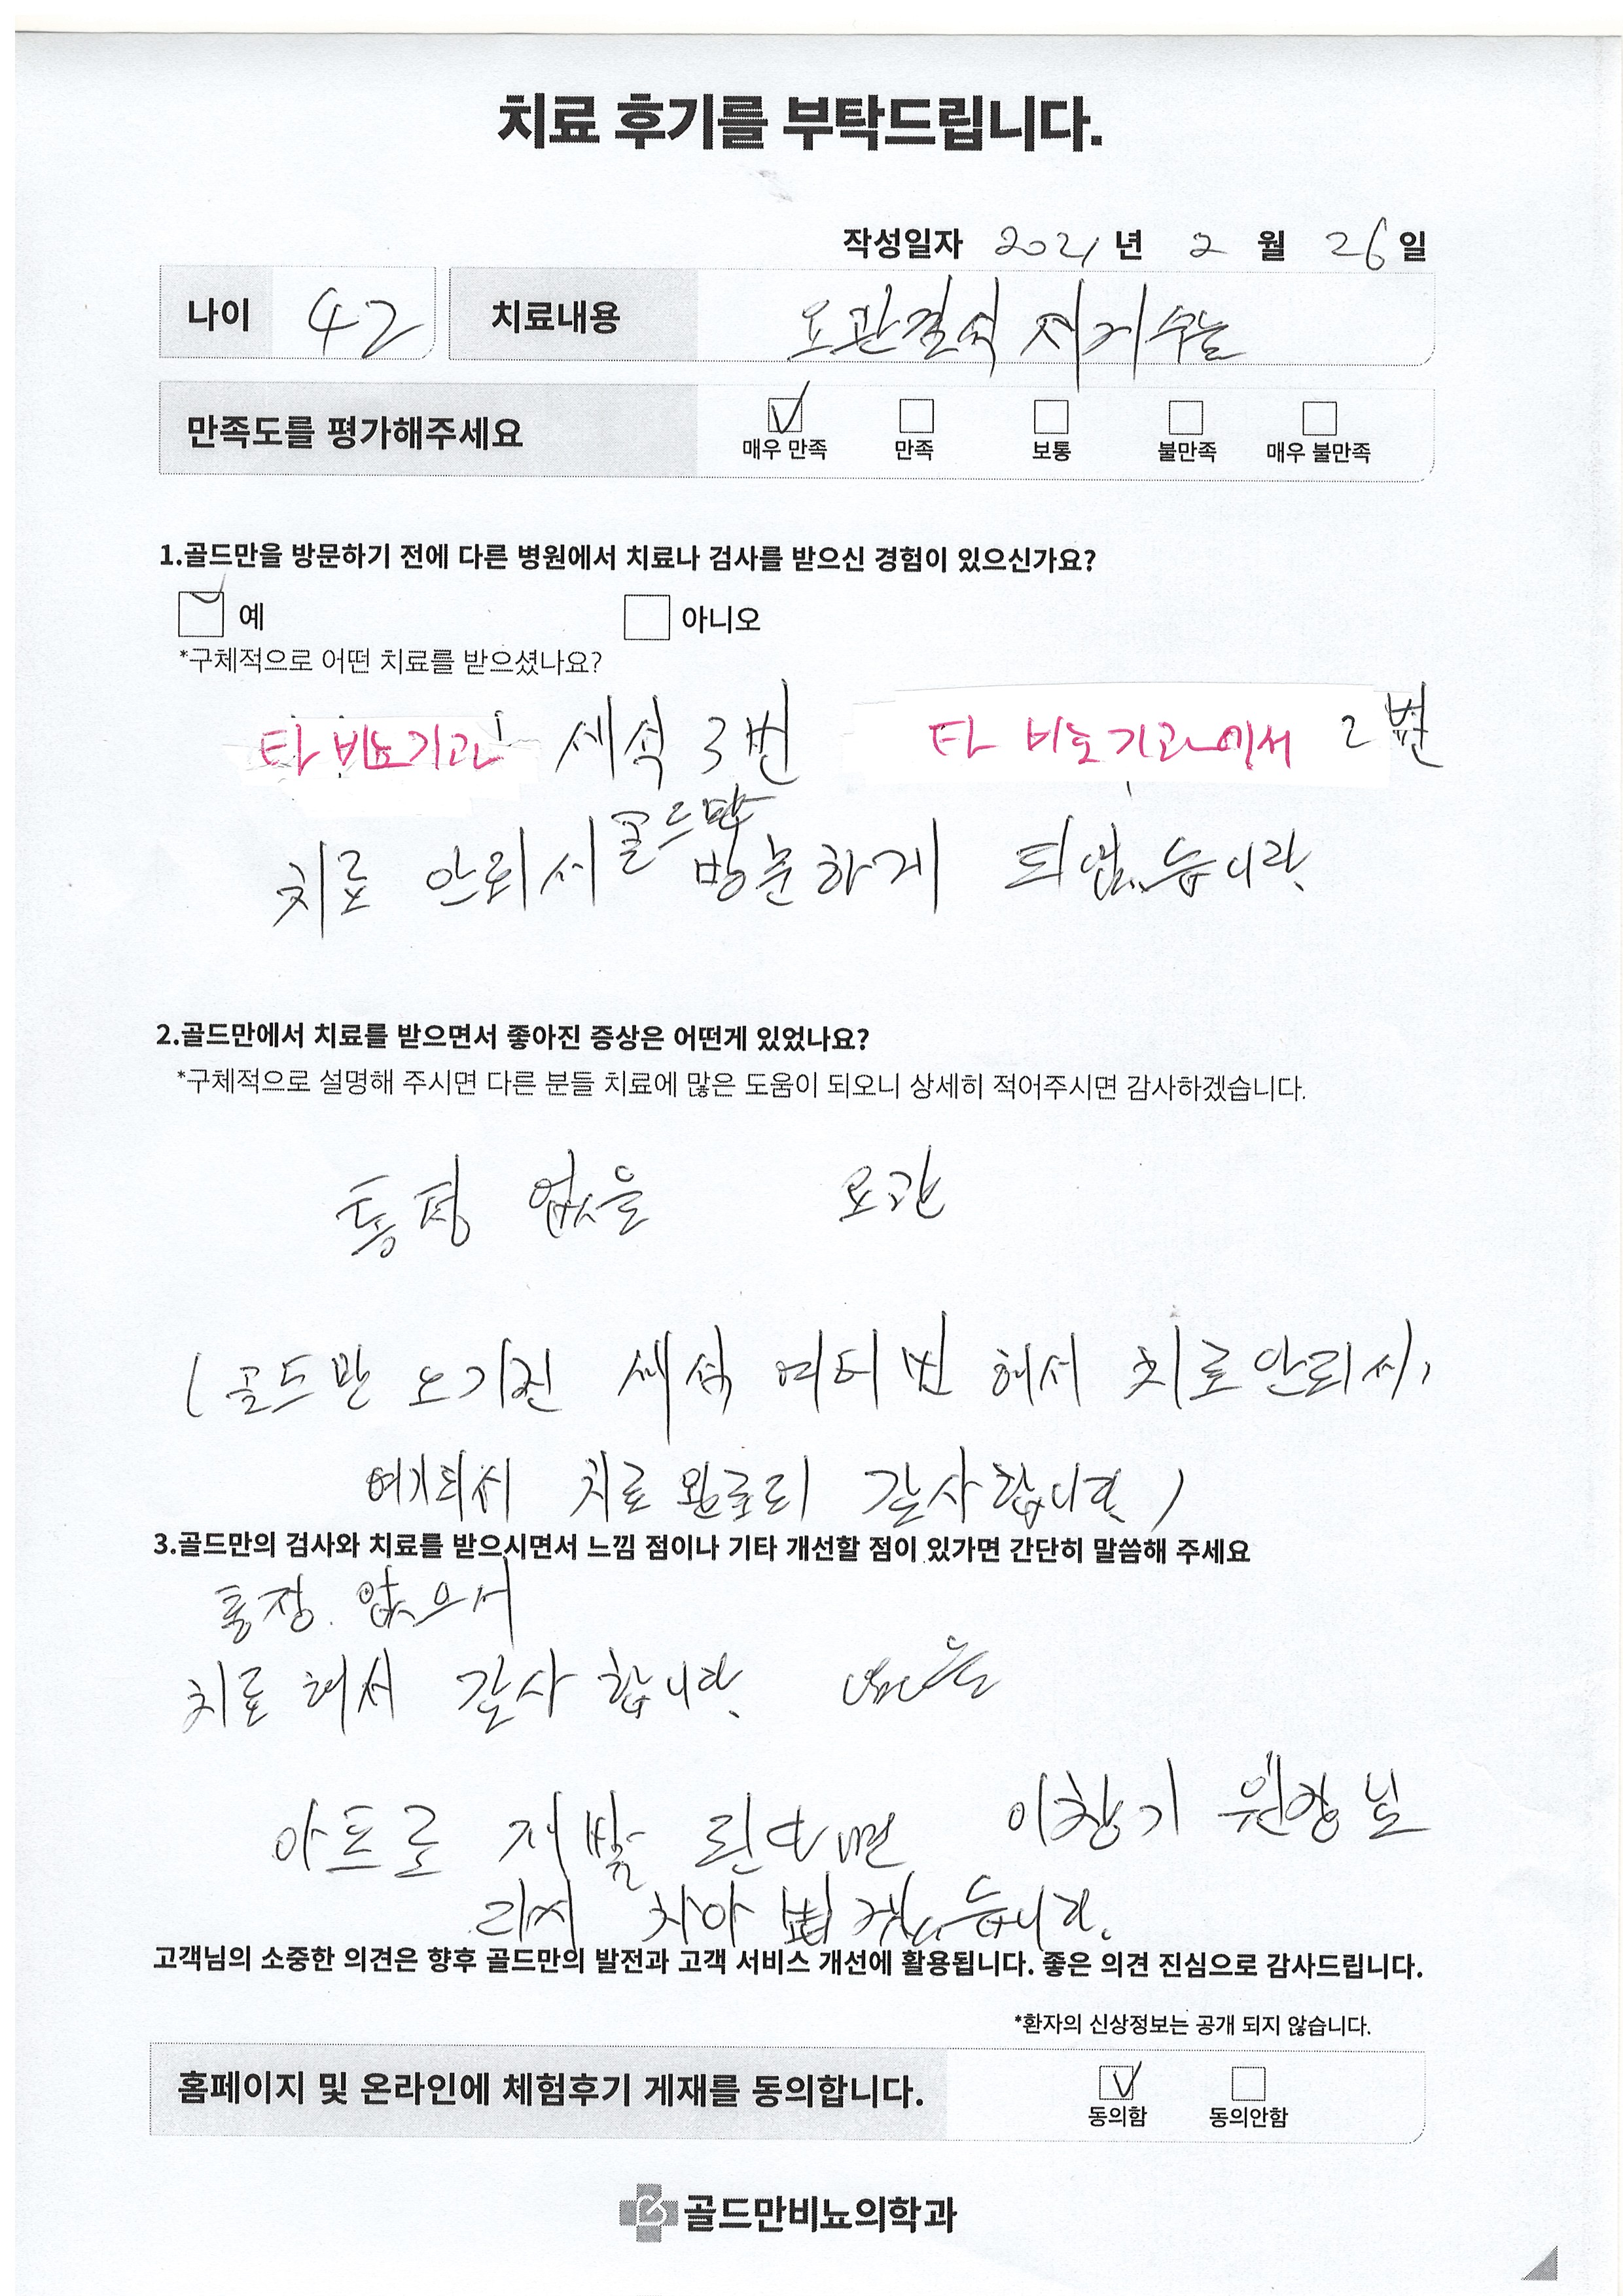 치료 후기를 부탁드립니다.
작성일자 2021 년 2 월 26 일
나이 42 치료내용 요관결석 제거수술
만족도를 평가해주세요
매우 만족 만족 보통 불만족 매우 불만족
1.골드만을 방문하기 전에 다른 병원에서 치료나 검사를 받으신 경험이 있으신가요?
예 아니오
*구체적으로 어떤 치료를 받으셨나요?
타 비뇨기과 쇄석 3번 타 비뇨기과에서 2번
치료 안되서 골드만 방문하게 되었습니다.
2.골드만에서 치료를 받으면서 좋아진 증상은 어떤게 있었나요?
*구체적으로 설명해 주시면 다른 분들 치료에 많은 도움이 되오니 상세히 적어주시면 감사하겠습니다.
통증 없음 요관
(골드만 오기전 쇄석 여러번 해서 치료안되서,
치료 완료되 감사합니다)
3.골드만의 검사와 치료를 받으시면서 느낌 점이나 기타 개선할 점이 있가면 간단히 말씀해 주세요
통증. 없으서
치료 해서 감사 합니다.
아프로 재발 된다면 이창기 원장님
다시 차아 뵙겠습니다.
고객님의 소중한 의견은 향후 골드만의 발전과 고객 서비스 개선에 활용됩니다. 좋은 의견 진심으로 감사드립니다.
*환자의 신상정보는 공개 되지 않습니다.
홈페이지 및 온라인에 체험후기 게재를 동의합니다.
동의함 동의안함
골드만비뇨의학과